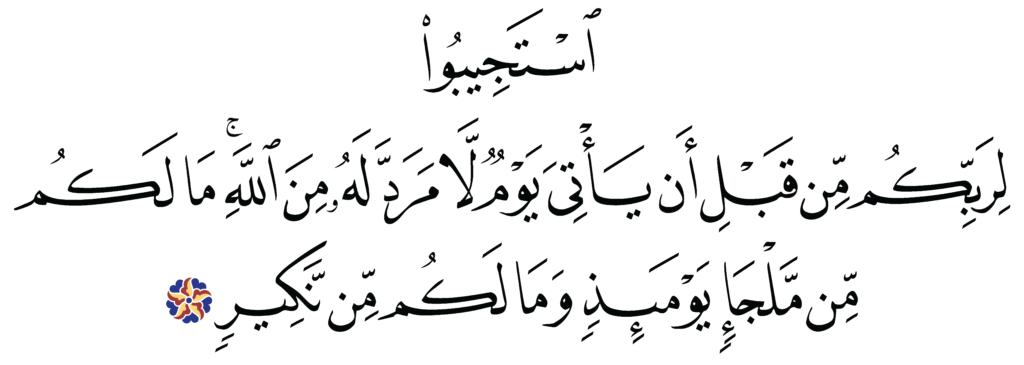 ٱسْتَجِيبُوا۟
لِرَبِّكُم مِّن قَبْلِ أَن يَأْتِىَ يَوْمٌ لَّا مَرَدَّ لَهُۥ مِنَ ٱللَّهِ ۚ مَا لَكُم
مِّن مَّلْجَإٍ يَوْمَئِذٍ وَمَا لَكُم مِّن نَّكِيرٍ